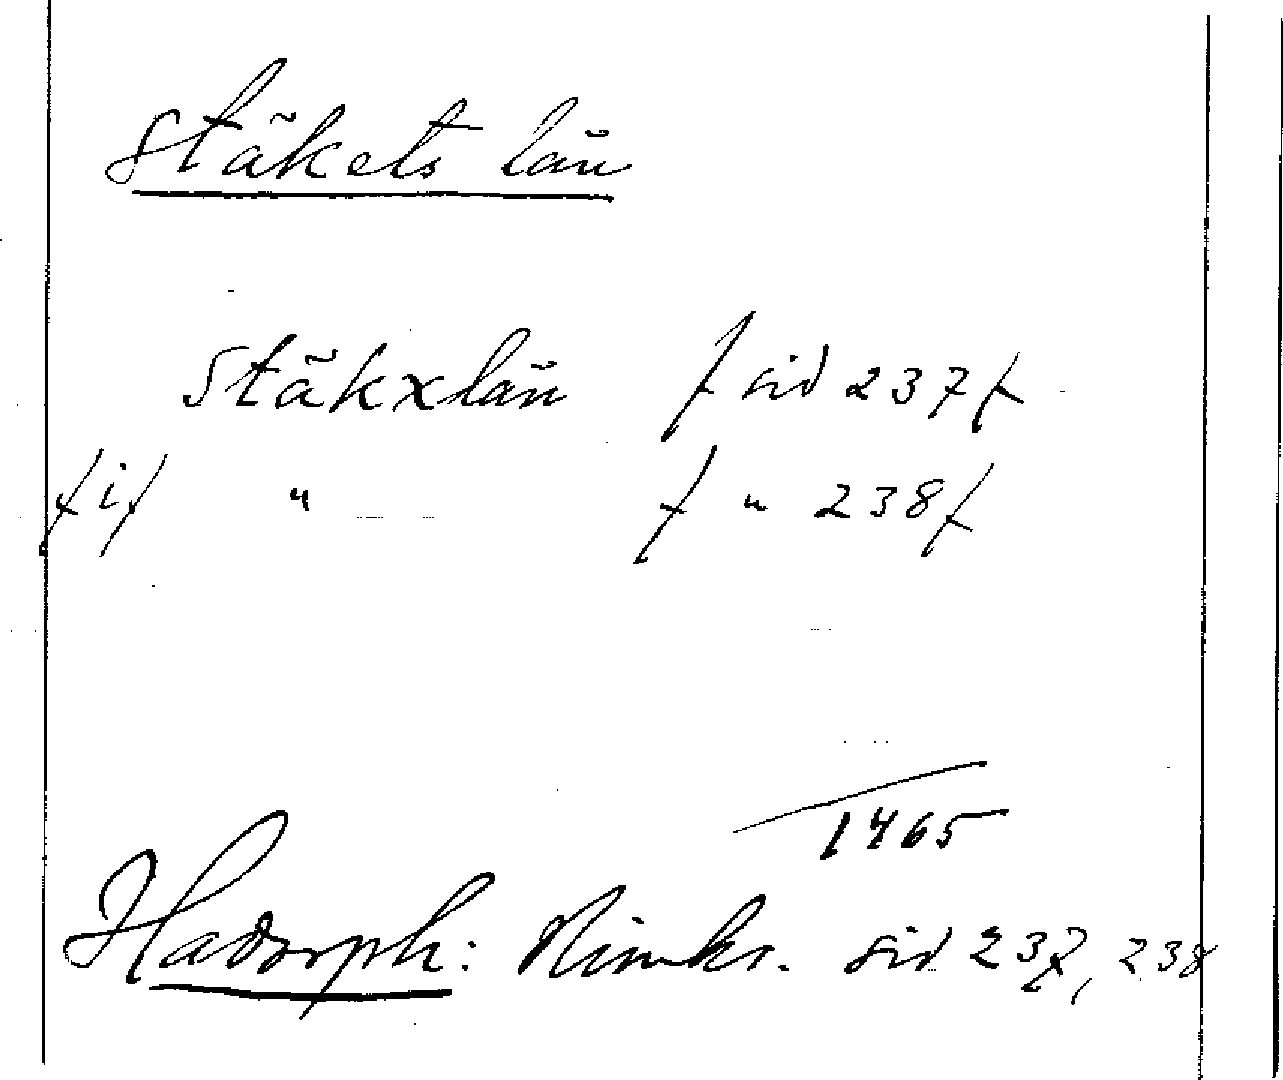 Stäkets län
Stäkxlän / sid 237 /
/ i / " / " 238 /
1465
Hadorph: Rimkr. sid 237, 238